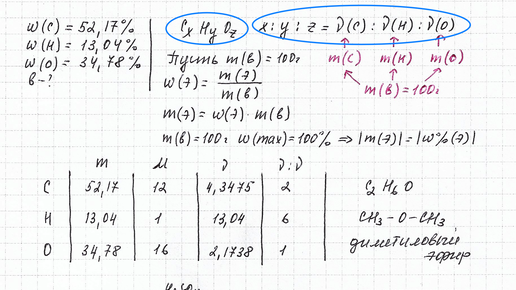 w(C) = 52,17%
w(H) = 13,04%
w(O) = 34,78%
в-?
CxHyOz
x : y : z = ν(C) : ν(H) : ν(O)
m(C) m(H) m(O)
m(в) = 100г
Пусть m(в) = 100г
w(э) = m(э) / m(в)
m(э) = w(э) · m(в)
m(в) = 100г w(max) = 100% ⇒ |m(э)| = |w%(э)|
m M ν ν:ν
C 52,17 12 4,3475 2 C2H6O
H 13,04 1 13,04 6 CH3-O-CH3
O 34,78 16 2,1738 1 диметиловый
эфир